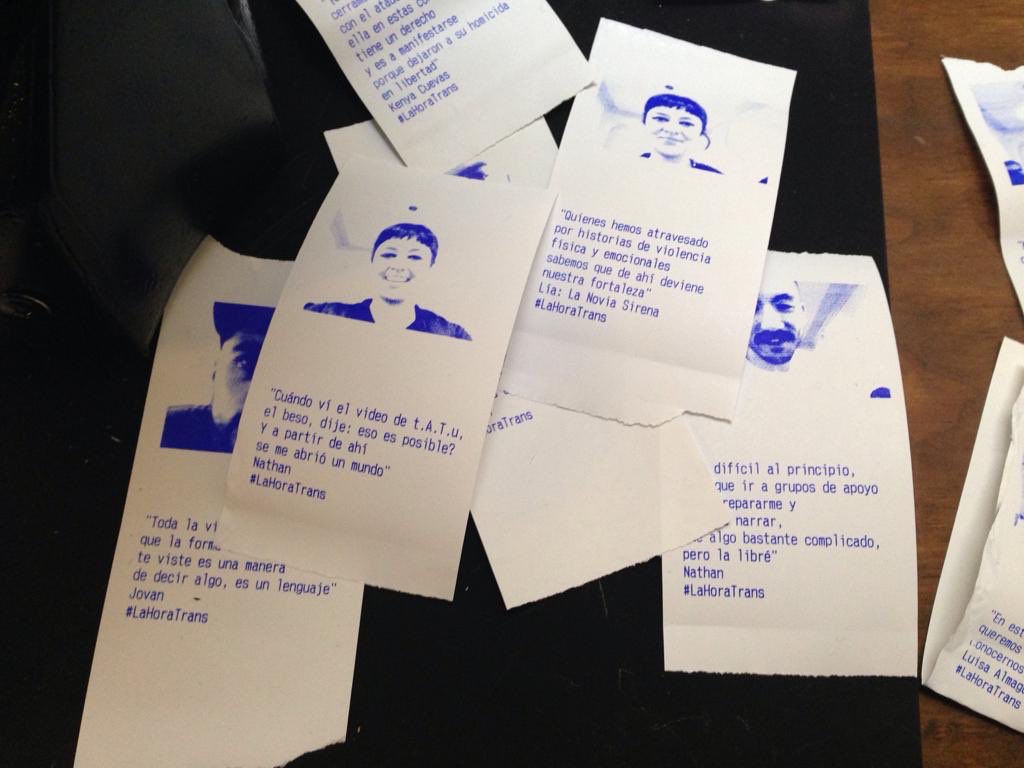 con el
ella en estas
tiene un derecho
y es a manifestarse
porque dejaron a su homicida
en libertad"
Kenya Cuevas
#LaHoraTrans
"Quienes hemos atravesado
por historias de violencia
física y emocionales
sabemos que de ahí deviene
nuestra fortaleza"
Lía: La Novia Sirena
#LaHoraTrans
"Cuándo ví el video de t.A.T.u,
el beso, dije: eso es posible?
Y a partir de ahí
se me abrió un mundo"
Nathan
#LaHoraTrans
oraTrans
"Toda la vi
que la form
te viste es una manera
de decir algo, es un lenguaje"
Jovan
#LaHoraTrans
difícil al principio,
que ir a grupos de apoyo
repararme y
narrar,
algo bastante complicado,
pero la libré"
Nathan
#LaHoraTrans
"En est
queremos
onocernos
Luisa Almag
#LaHoraTrans